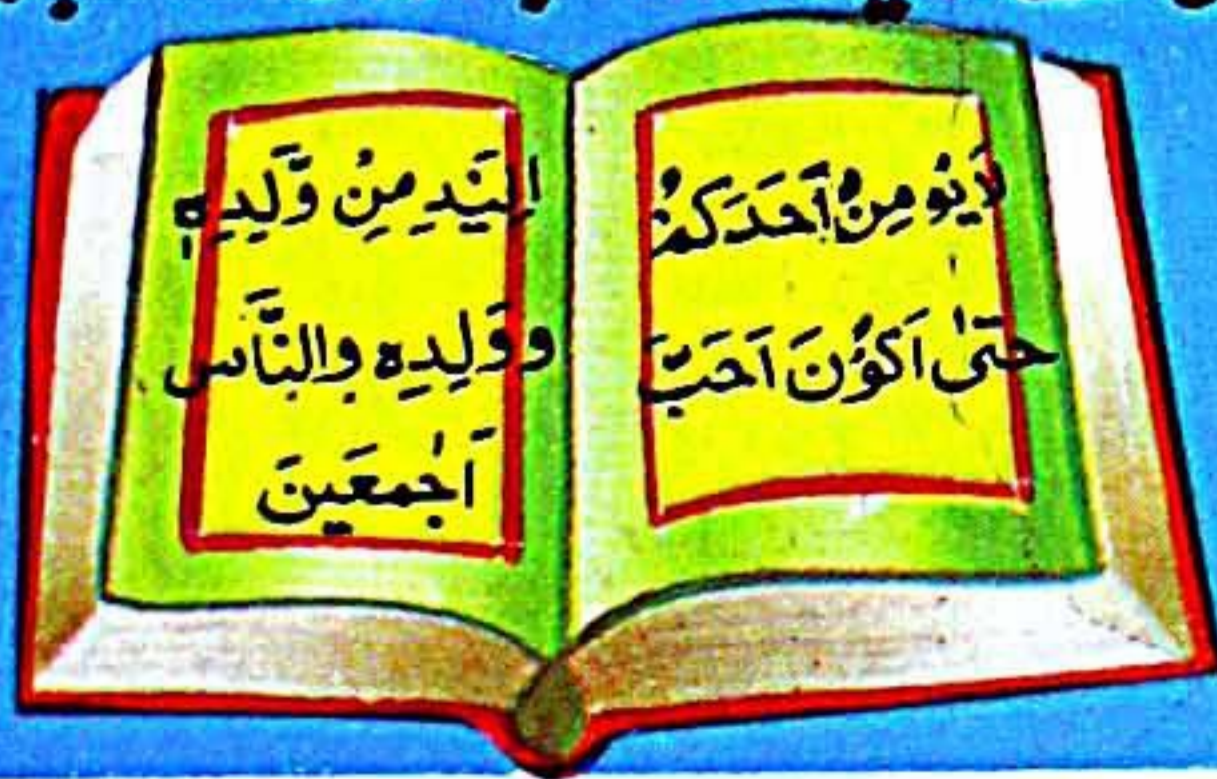 لَا يُومِنُ اَحَدَكُمْ
حَتىٰ اَكُوْنَ اَحَبَّ
اِلَيَهِ مِنْ وَّلِدِهٖ
ووَلِدِهٖ والنَّاس
اَجْمَعَين